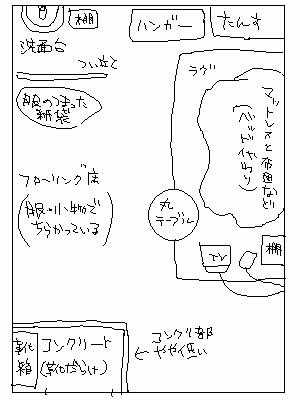 棚
ハンガー
たんす
洗面台
つい立て
ラグ
服のつまった
紙袋
マットレスと布団など
(ベッド代わり)
フローリング床
(服・小物で
ちらかっている)
丸
テーブル
TV
棚
靴
箱
コンクリート
(靴だらけ)
←コンクリ部
やや低い